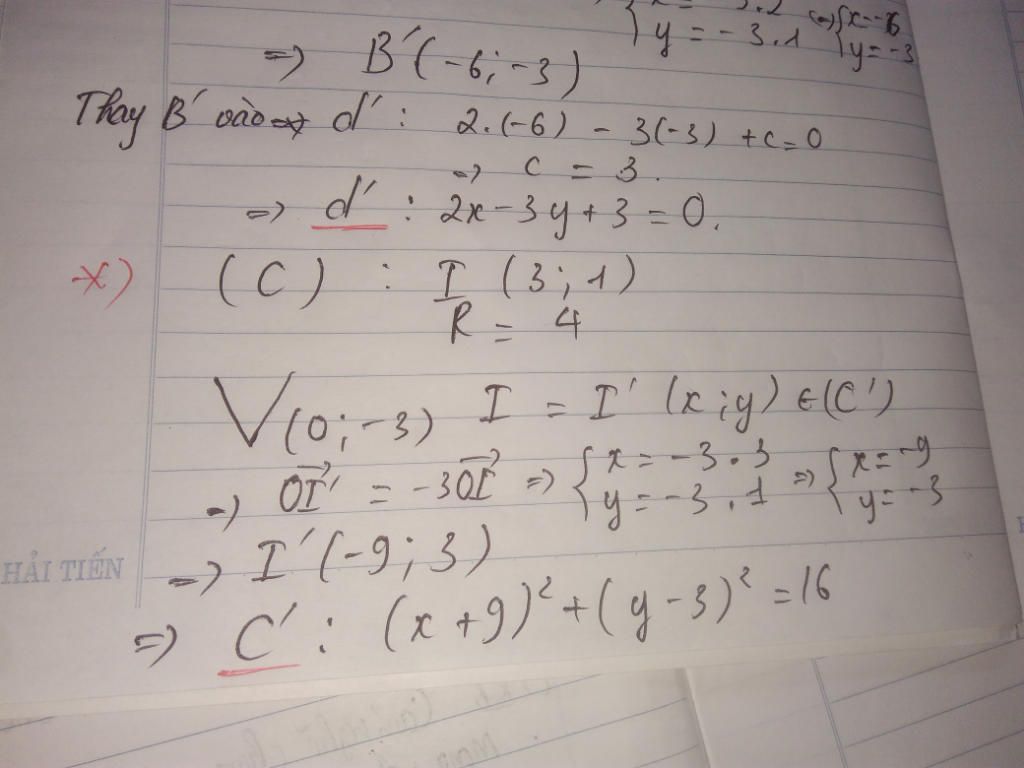 y = -3.1 <=> { x = -6
y = -3
=> B'(-6; -3)
Thay B' vào => d' : 2.(-6) - 3(-3) + c = 0
=> c = 3.
=> d' : 2x - 3y + 3 = 0.
*) (C) : I (3; 1)
R = 4
V(0; -3) I = I' (x; y) ∈ (C')
=> OI' = -3OI => { x = -3.3 => { x = -9
y = -3.1 y = -3
=> I'(-9; 3)
HẢI TIẾN
=> C' : (x + 9)² + (y - 3)² = 16